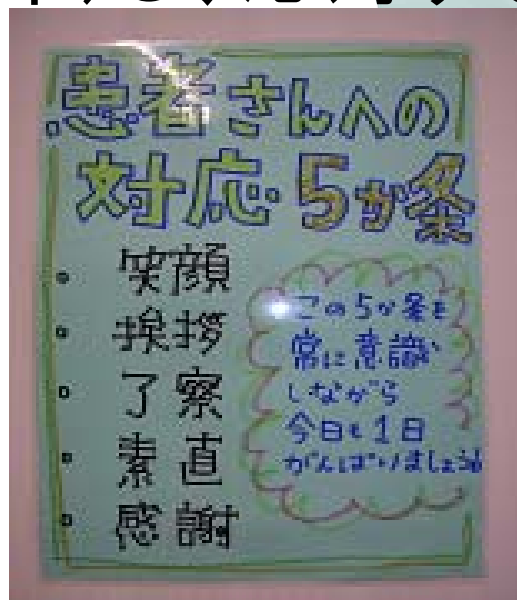 患者さんへの
対応5か条
笑顔
挨拶
了察
素直
感謝
この5か条を
常に意識
しながら
今日も1日
がんばりましょう